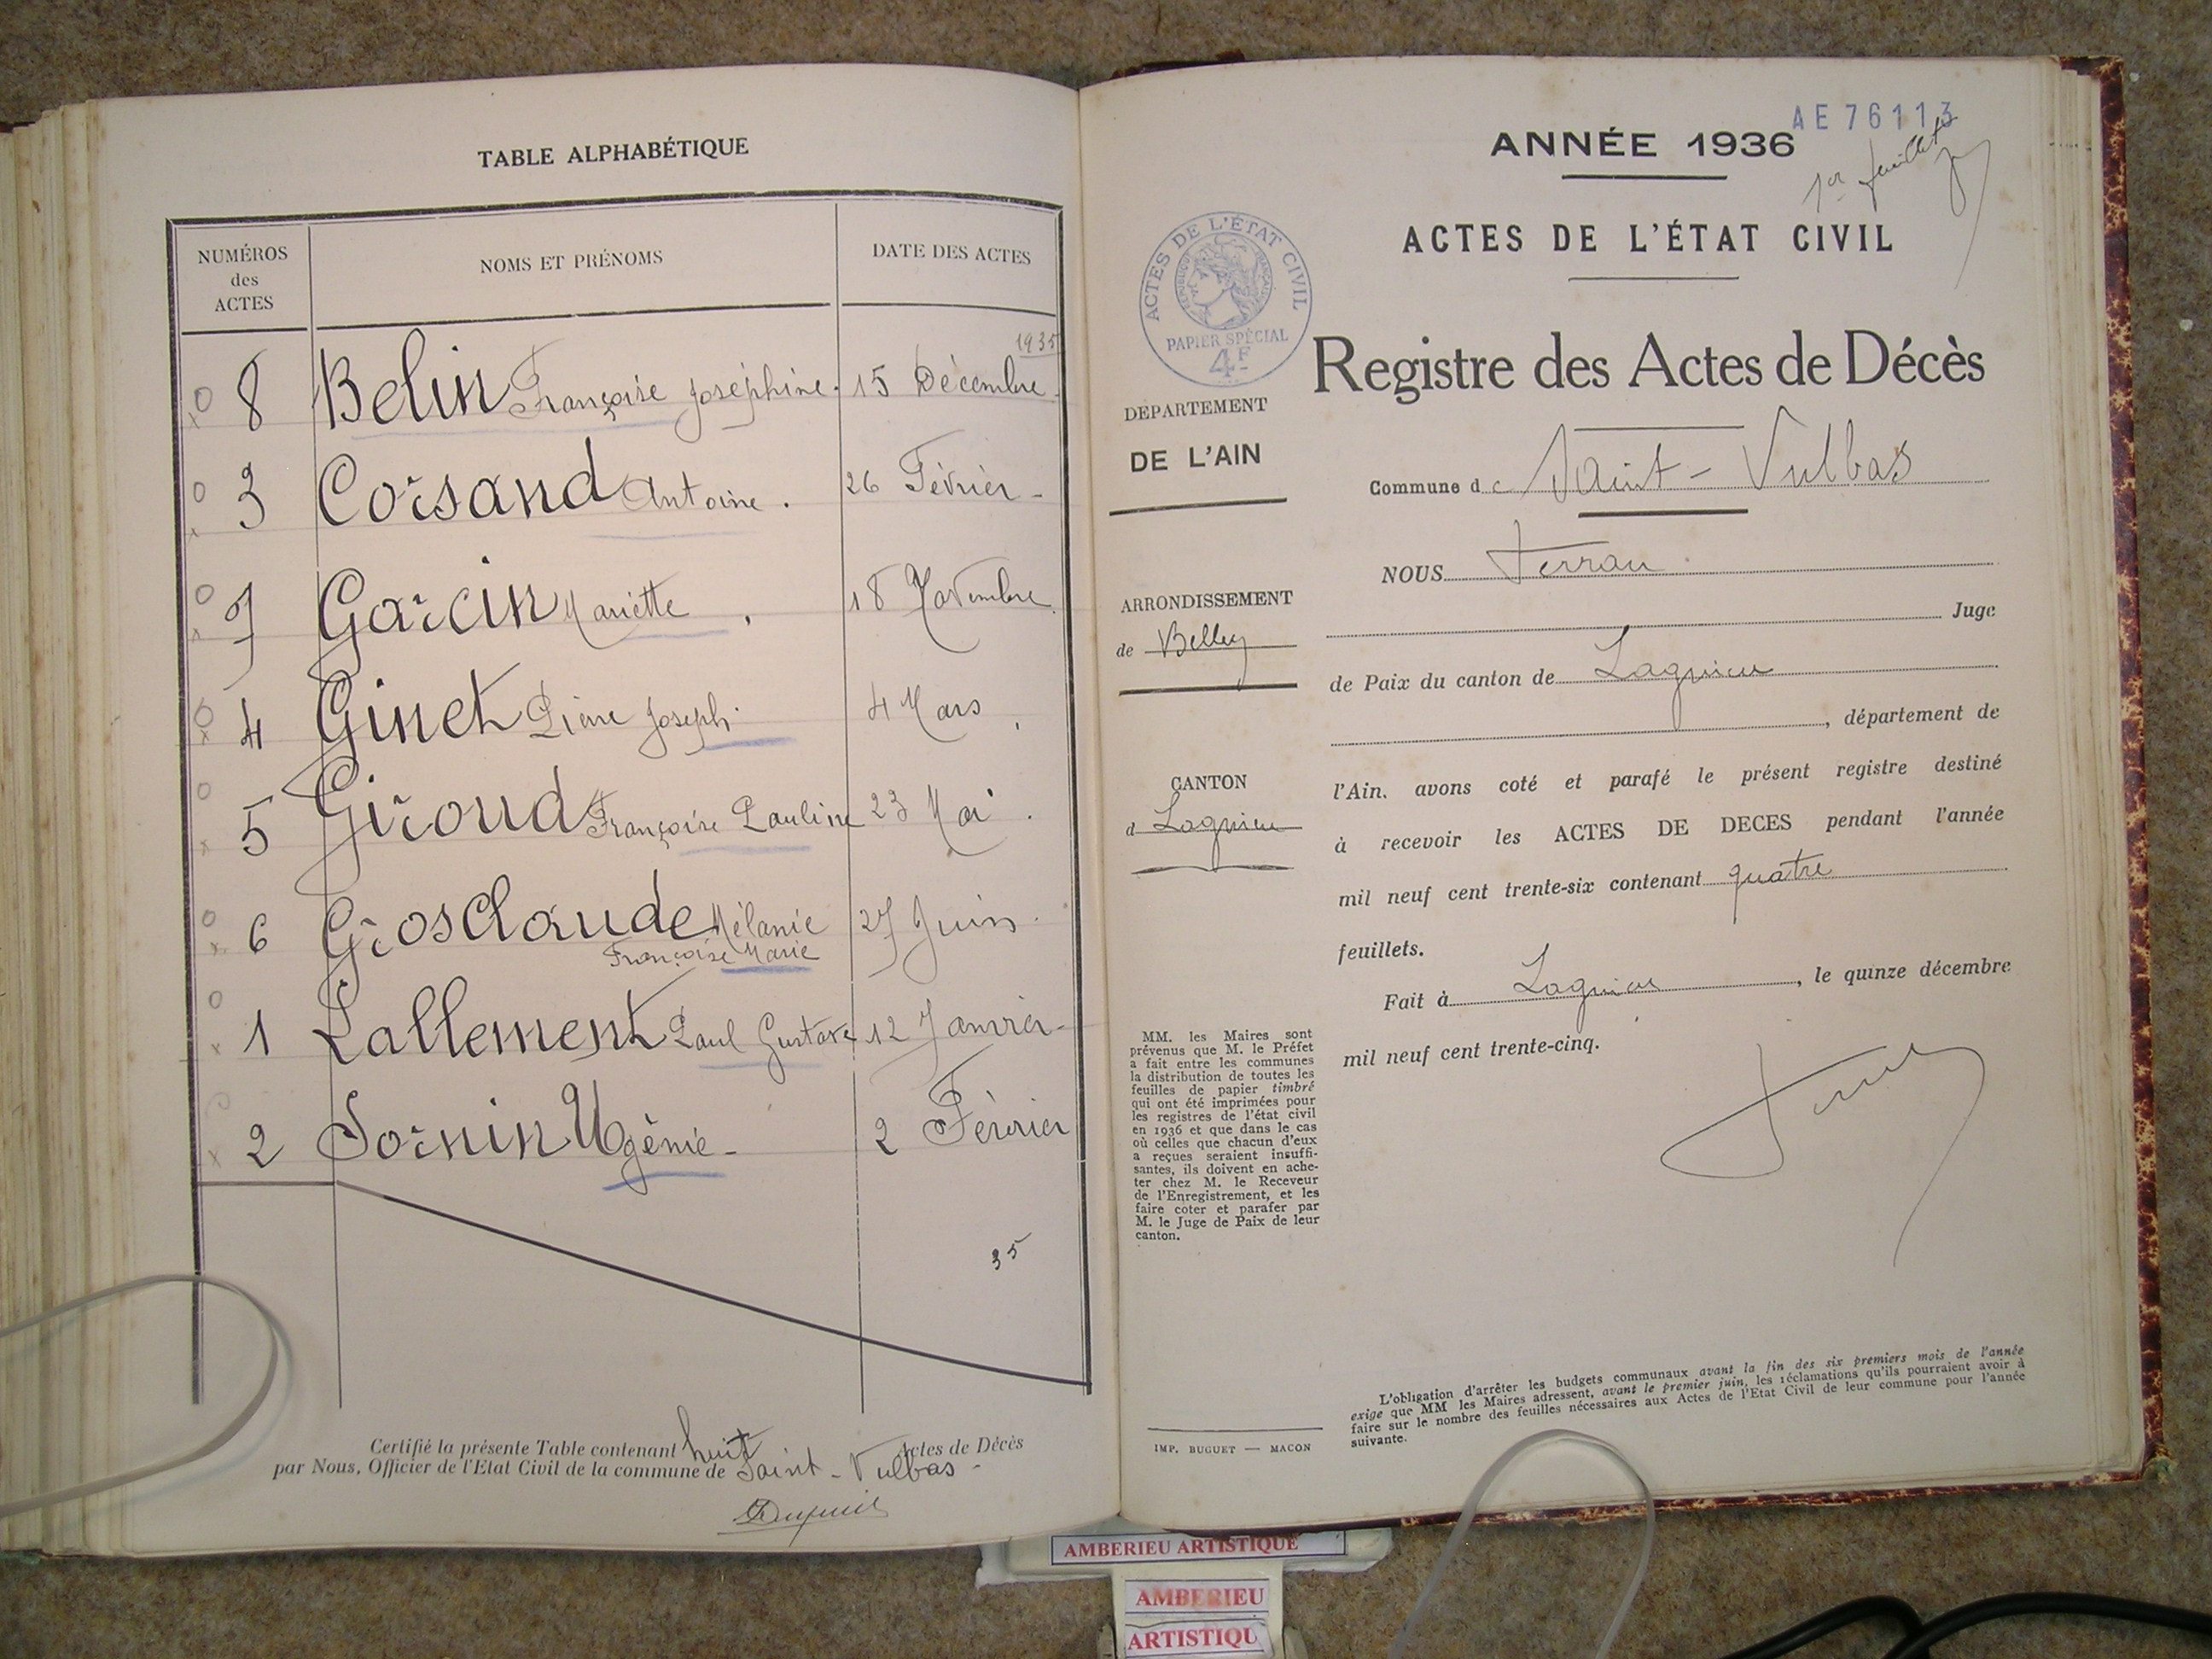 TABLE ALPHABÉTIQUE
NUMÉROS
des
ACTES
NOMS ET PRÉNOMS
DATE DES ACTES
1935
8 Belin Françoise Joséphine. 15 Décembre.
3 Corsand Antoine. 26 Février -
7 Garcin Mariette. 18 Novembre.
4 Ginet Pierre Joseph. 4 Mars.
5 Giroud Françoise Pauline 23 Mai.
6 Grosclaude Mélanie 27 Juin.
Françoise Marie
1 Lallement Paul Gustave 12 Janvier -
2 Sornin Ugènie - 2 Février
35
Certifié la présente Table contenant huit Actes de Décès
par Nous, Officier de l'Etat Civil de la commune de Saint-Vulbas -
AE 76113
ANNÉE 1936
1er feuillet
ACTES DE L'ÉTAT CIVIL
ACTES DE L'ÉTAT CIVIL
RÉPUBLIQUE FRANÇAISE
PAPIER SPÉCIAL
4F
Registre des Actes de Décès
DÉPARTEMENT
DE L'AIN
Commune de Saint-Vulbas
NOUS Ferran
ARRONDISSEMENT
de Belley
Juge
de Paix du canton de Lagnieu
, département de
CANTON
d Lagnieu
l'Ain, avons coté et parafé le présent registre destiné
à recevoir les ACTES DE DECES pendant l'année
mil neuf cent trente-six contenant quatre
feuillets.
Fait à Lagnieu, le quinze décembre
mil neuf cent trente-cinq.
MM. les Maires sont
prévenus que M. le Préfet
a fait entre les communes
la distribution de toutes les
feuilles de papier timbré
qui ont été imprimées pour
les registres de l'état civil
en 1936 et que dans le cas
où celles que chacun d'eux
a reçues seraient insuffi-
santes, ils doivent en ache-
ter chez M. le Receveur
de l'Enregistrement, et les
faire coter et parafer par
M. le Juge de Paix de leur
canton.
L'obligation d'arrêter les budgets communaux avant la fin des six premiers mois de l'année
exige que MM les Maires adressent, avant le premier juin, les réclamations qu'ils pourraient avoir à
faire sur le nombre des feuilles nécessaires aux Actes de l'Etat Civil de leur commune pour l'année
suivante.
IMP. BUGUET — MACON
AMBERIEU ARTISTIQUE
AMBERIEU
ARTISTIQU